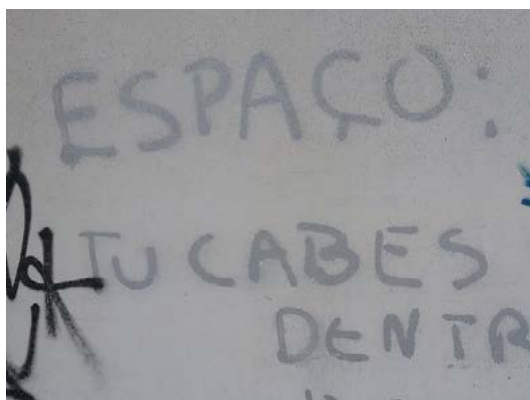 ESPAÇO:
TU CABES
DENTR